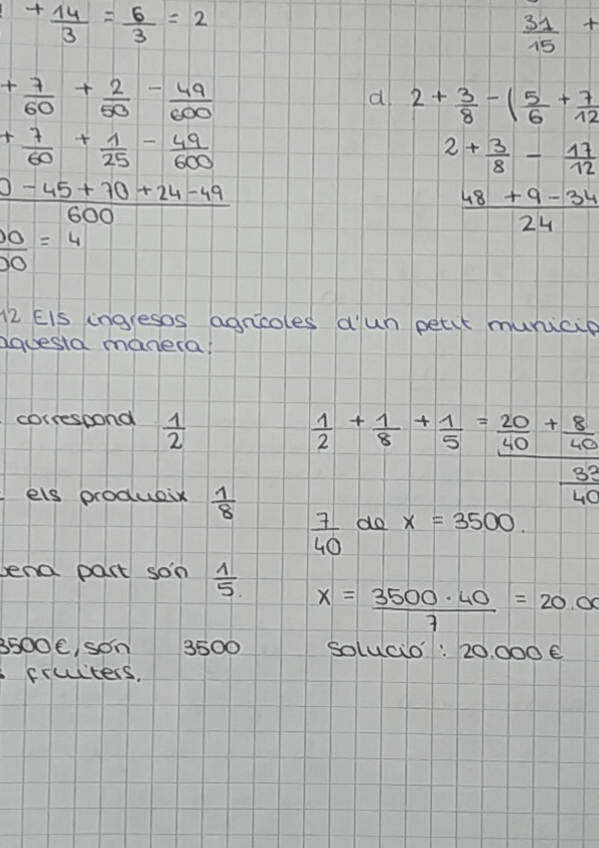 + 14/3 = 6/3 = 2
31/15 +
+ 7/60 + 2/50 - 49/600
+ 7/60 + 1/25 - 49/600
0 - 45 + 70 + 24 - 49 / 600
00/00 = 4
d. 2 + 3/8 - (5/6 + 7/12
2 + 3/8 - 17/12
48 + 9 - 34 / 24
12 Els ingresos agrícoles d'un petit municip
aquesta manera:
correspond 1/2
els produeix 1/8
ena part són 1/5.
3500€, són 3500
fruiters.
1/2 + 1/8 + 1/5 = 20/40 + 8/40
33/40
7/40 de x = 3500.
x = 3500·40/7 = 20.00
Solució: 20.000€